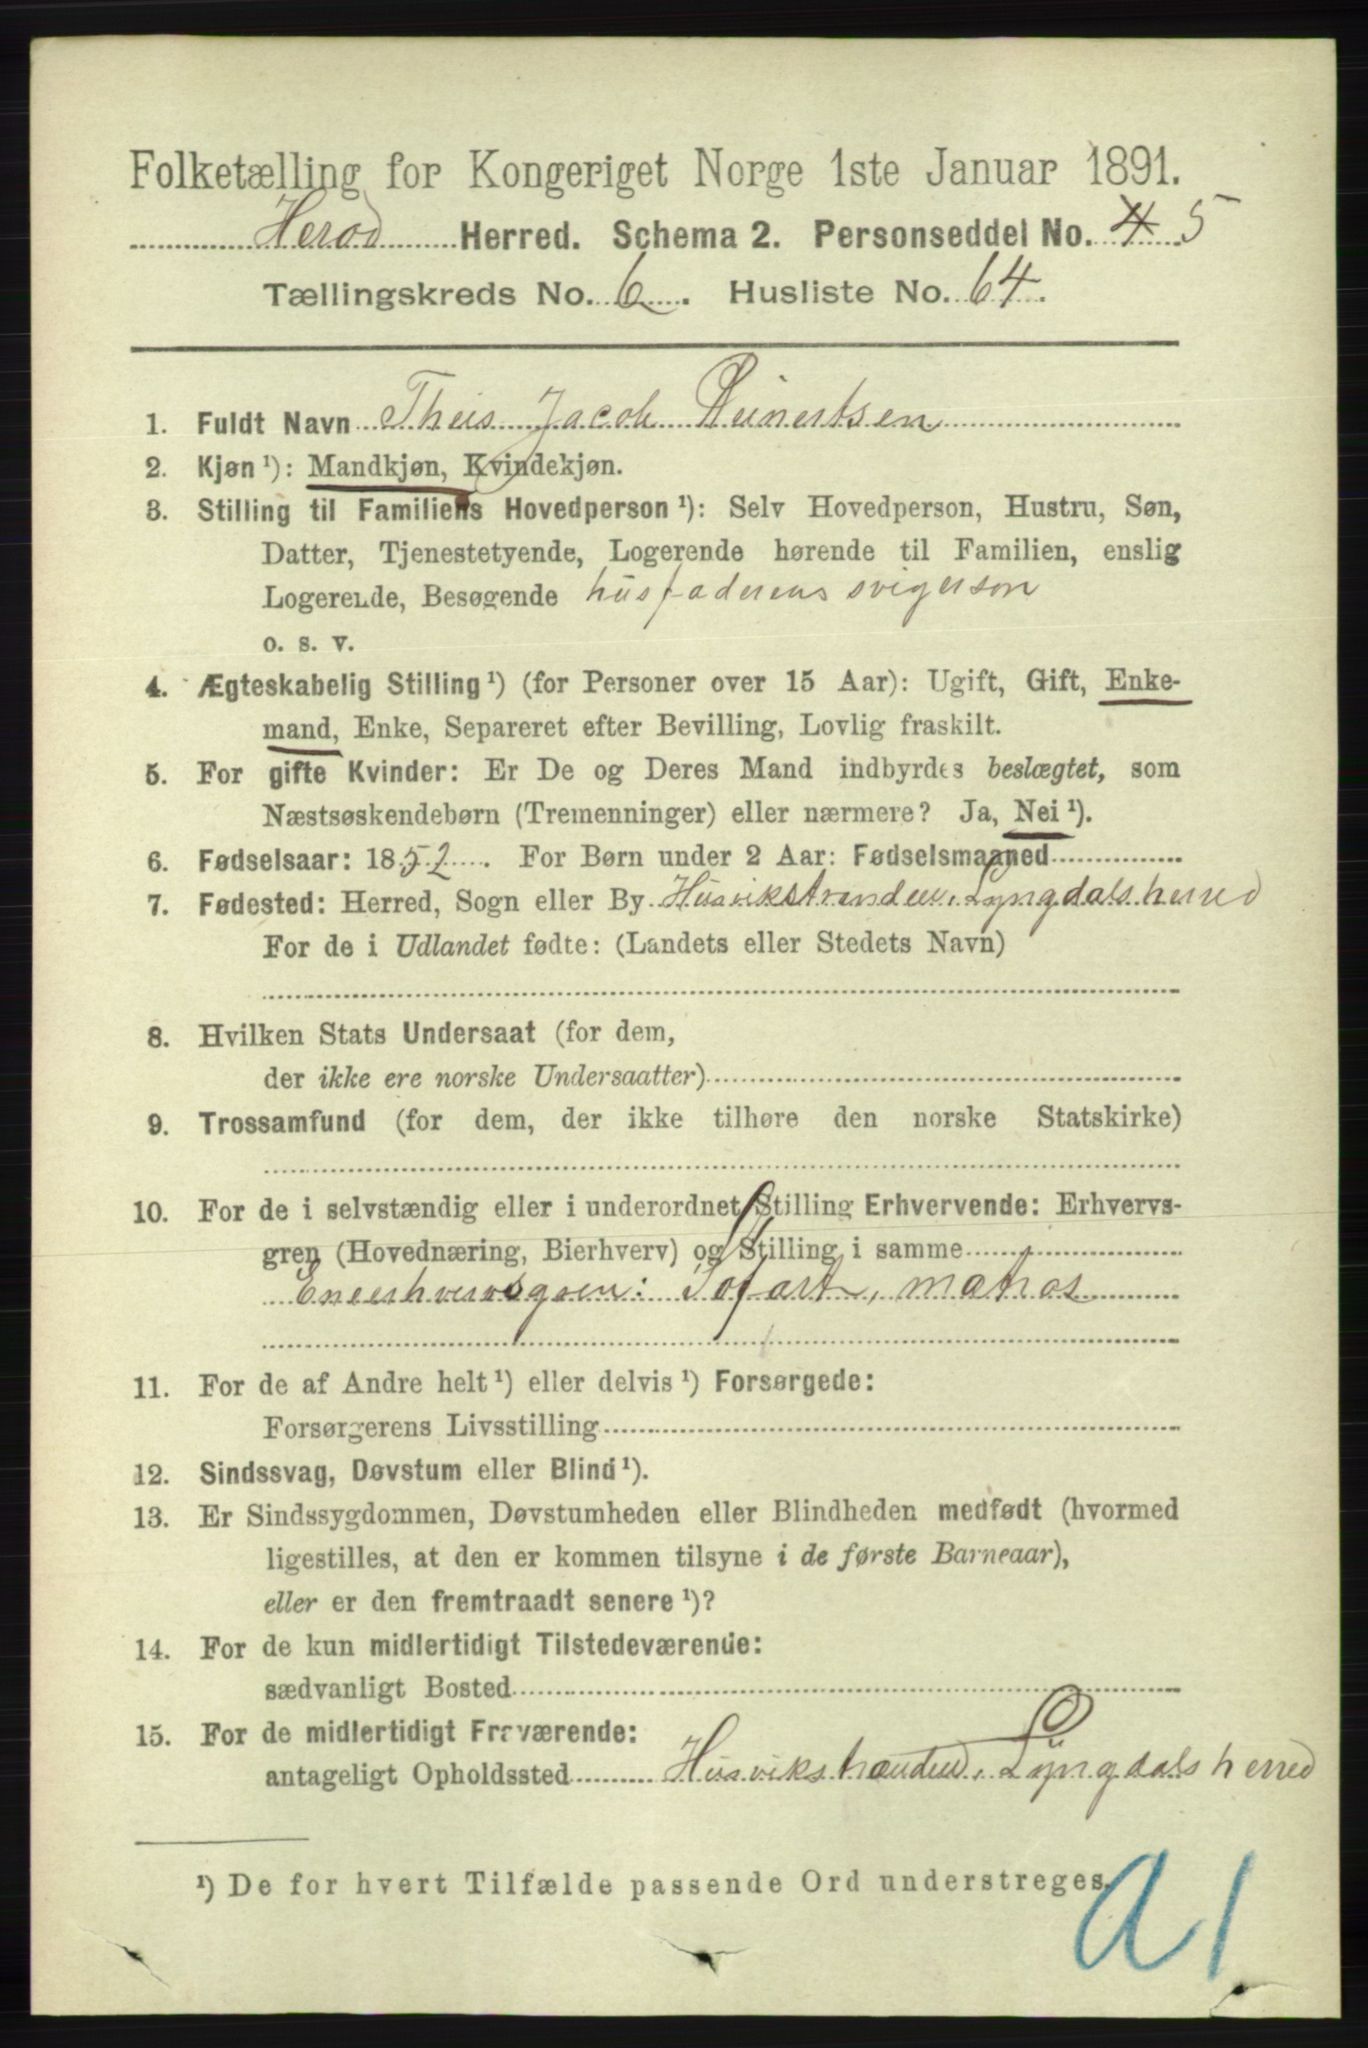 Folketælling for Kongeriget Norge 1ste Januar 1891.
Herad Herred. Schema 2. Personseddel No. 4 5
Tællingskreds No. 6. Husliste No. 64.
1. Fuldt Navn Theis Jacob Reinertsen
2. Kjøn ¹): Mandkjøn, Kvindekjøn.
3. Stilling til Familiens Hovedperson ¹): Selv Hovedperson, Hustru, Søn,
Datter, Tjenestetyende, Logerende hørende til Familien, enslig
Logerende, Besøgende husfaderens svigerson
o. s. v.
4. Ægteskabelig Stilling ¹) (for Personer over 15 Aar): Ugift, Gift, Enke-
mand, Enke, Separeret efter Bevilling, Lovlig fraskilt.
5. For gifte Kvinder: Er De og Deres Mand indbyrdes beslægtet, som
Næstsøskendebørn (Tremenninger) eller nærmere? Ja, Nei ¹).
6. Fødselsaar: 1852. For Børn under 2 Aar: Fødselsmaaned
7. Fødested: Herred, Sogn eller By Husvikstranden, Lyngdals herred
For de i Udlandet fødte: (Landets eller Stedets Navn)
8. Hvilken Stats Undersaat (for dem,
der ikke ere norske Undersaatter)
9. Trossamfund (for dem, der ikke tilhøre den norske Statskirke)
10. For de i selvstændig eller i underordnet Stilling Erhvervende: Erhvervs-
gren (Hovednæring, Bierhverv) og Stilling i samme
Eneerhvervsgren: Søfart, matros
11. For de af Andre helt ¹) eller delvis ¹) Forsørgede:
Forsørgerens Livsstilling
12. Sindssvag, Døvstum eller Blind ¹).
13. Er Sindssygdommen, Døvstumheden eller Blindheden medfødt (hvormed
ligestilles, at den er kommen tilsyne i de første Barneaar),
eller er den fremtraadt senere ¹)?
14. For de kun midlertidigt Tilstedeværende:
sædvanligt Bosted
15. For de midlertidigt Fraværende:
antageligt Opholdssted Husvikstranden, Lyngdals herred
¹) De for hvert Tilfælde passende Ord understreges.
a1